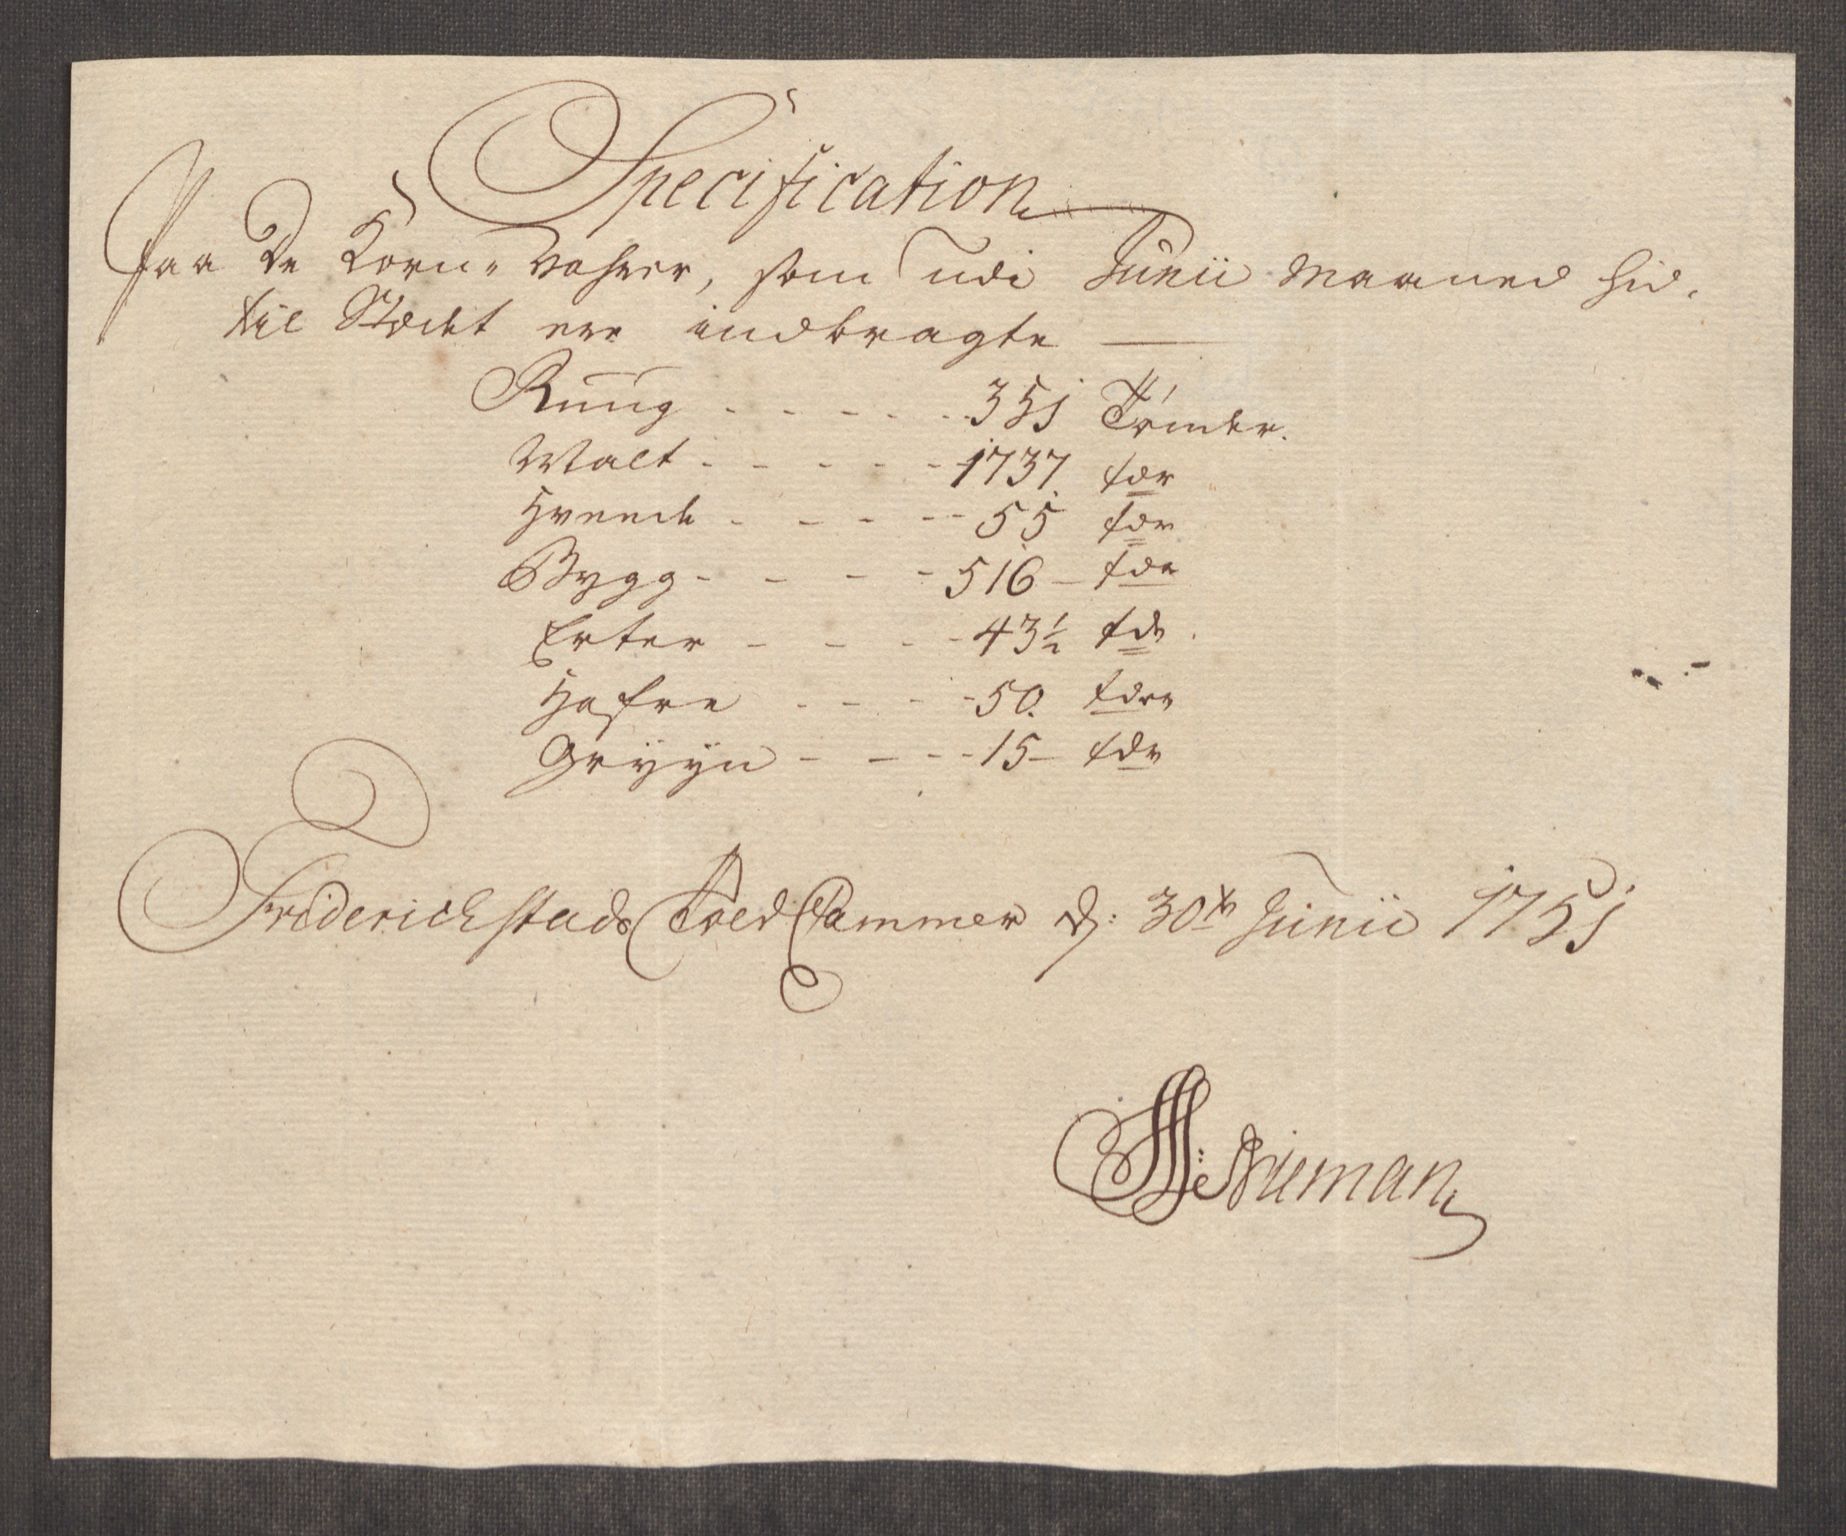 Specification
Paa De Korn-Vahrer, som udi Junii Maaned hid-
til Stædet ere indbragte
Ruug - - - - - 351 Tønder.
Malt - - - - - 1737 tdr
Hveede - - - - - 55 tdr
Bygg - - - - 516 - tdr
Erter - - - - 43½ tdr
Hafre - - - - 50. tdr
Gryyn - - - - 15 - tdr
Friderichstads Told Cammer d: 30te Junii 1751
Nieman